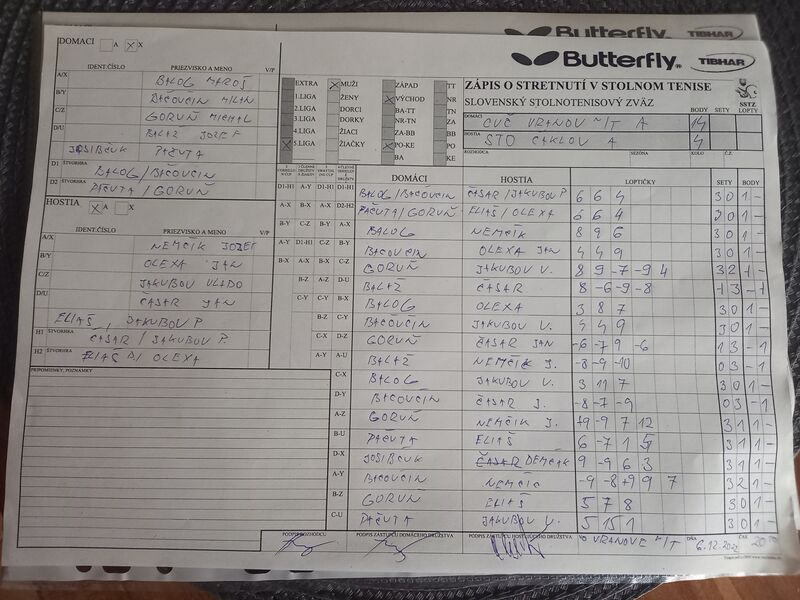 Butterfly
TIBHAR
Butterfly
TIBHAR
DOMACI A X X
IDENT.ČÍSLO PRIEZVISKO A MENO V/P
A/X BALOG MAROŠ
B/Y BAČOVČIN MILAN
C/Z GORUŇ MICHAL
D/U BALÁŽ JOZEF
JOSIBČUK PAČUTA
D1 ŠTVORHRA BALOG/BACOVČIN
D2 ŠTVORHRA PAČUTA/GORUŇ
HOSTIA X A X
IDENT.ČÍSLO PRIEZVISKO A MENO V/P
A/X NEMČÍK JOZEF
B/Y OLEXA JAN
C/Z JAKUBOV VLADO
D/U ČASAR JAN
ELIAŠ, JAKUBOV P
H1 ŠTVORHRA ČASAR/JAKUBOV P.
H2 ŠTVORHRA ELIAŠ D/ OLEXA
PRIPOMIENKY, POZNÁMKY
EXTRA X MUŽI ZÁPAD TT
1.LIGA ŽENY X VÝCHOD NR
2.LIGA DORCI BA-TT TN
3.LIGA DORKY NR-TN ZA
4.LIGA ŽIACI ZA-BB BB
X 5.LIGA ŽIAČKY X PO-KE PO
BA KE
ZÁPIS O STRETNUTÍ V STOLNOM TENISE
SLOVENSKÝ STOLNOTENISOVÝ ZVÄZ
SSTZ
BODY SETY LOPTY
DOMÁCI CVČ VRANOV N/T A 14
HOSTIA STO CAKLOV A 4
ROZHODCA SEZÓNA KOLO Č.Z.
DOMÁCI HOSTIA LOPTIČKY SETY BODY
D1-H1 A-Y D1-H1 D1-H1 BALOG/BACOVČIN ČASAR/JAKUBOV P. 6 6 4 3 0 1 -
A-X B-X A-X D2-H2 PAČUTA/GORUŇ ELIÁŠ/OLEXA 6 6 4 3 0 1 -
B-Y C-Z B-Y A-X BALOG NEMČÍK 8 9 6 3 0 1 -
A-Y D1-H1 C-Z B-Y BACOVČIN OLEXA JAN 4 4 9 3 0 1 -
B-X A-X D1-H1 C-Z GORUŇ JAKUBOV V. 8 9 -7 -9 4 3 2 1 -
B-Z A-Z D-U BALÁŽ ČASAR 8 -6 -9 -8 1 3 - 1
C-Y C-Y B-X BALOG OLEXA 3 8 7 3 0 1 -
B-Z C-Y BACOVČIN JAKUBOV V. 4 4 9 3 0 1 -
C-X D-Z GORUŇ ČASAR JAN -6 -7 9 -6 1 3 - 1
A-Y A-U BALÁŽ NEMČÍK J. -8 -9 -10 0 3 - 1
C-X BALOG JAKUBOV V. 3 11 7 3 0 1 -
D-Y BACOVČIN ČASAR J. -8 -7 -9 0 3 - 1
A-Z GORUŇ NEMČÍK J. 9 -9 7 12 3 1 1 -
B-U PAČUTA ELIÁŠ 6 -7 1 5 3 1 1 -
D-X JOSIBČUK ČASAR DEMČÁK 9 -9 6 3 3 1 1 -
A-Y BACOVČIN NEMČÍC -9 -8 9 9 7 3 2 1 -
B-Z GORUŇ ELIÁŠ 5 7 8 3 0 1 -
C-U PAČUTA JAKUBOV V. 5 15 1 3 0 1 -
PODPIS ROZHODCU PODPIS ZÁSTUPCU DOMÁCEHO DRUŽSTVA PODPIS ZÁSTUPCU HOSŤUJÚCEHO DRUŽSTVA VO VRANOVE N/T DŇA 6.12.2022 ČAS